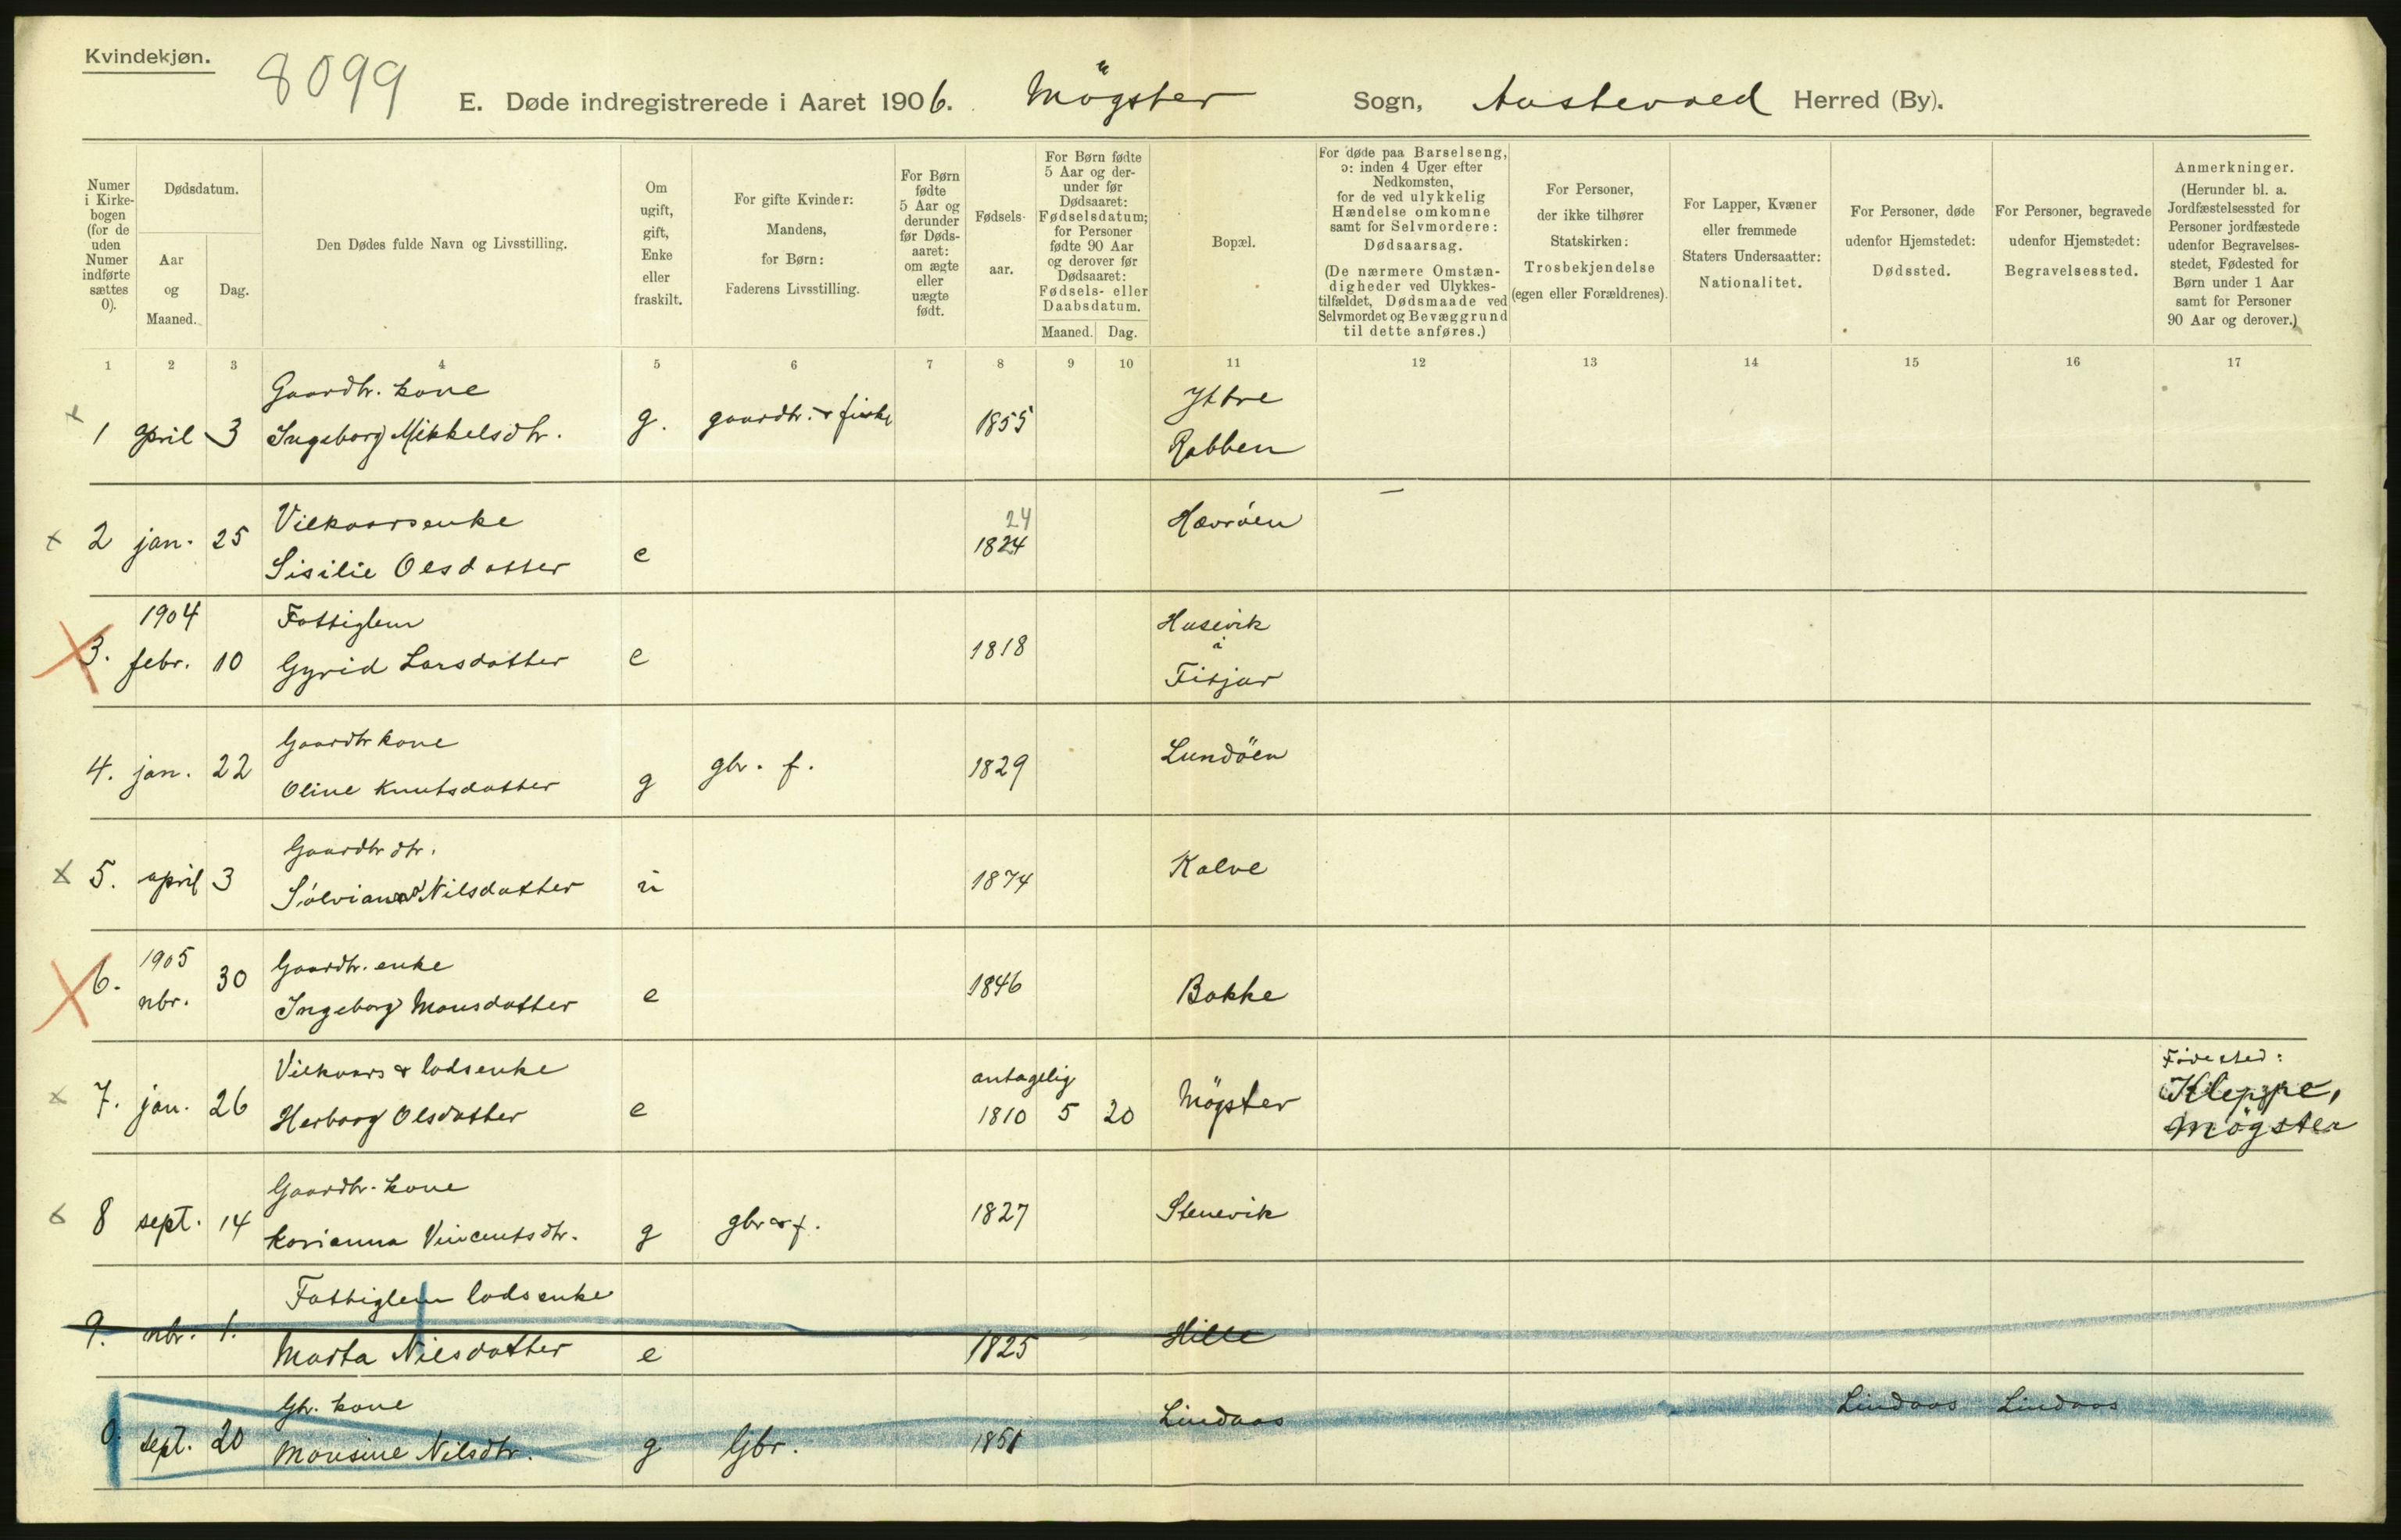 Kvindekjøn.
8099
E. Døde indregistrerede i Aaret 1906. Mögster Sogn, Austevoll Herred (By).
Numer i Kirke-bogen (for de uden Numer indførte sættes 0).
Dødsdatum.
Aar og Maaned.
Dag.
Den Dødes fulde Navn og Livsstilling.
Om ugift, gift, Enke eller fraskilt.
For gifte Kvinder: Mandens, for Børn: Faderens Livsstilling.
For Børn fødte 5 Aar og derunder før Døds-aaret: om ægte eller uægte født.
Fødsels-aar.
For Børn fødte 5 Aar og der-under før Dødsaaret: Fødselsdatum; for Personer fødte 90 Aar og derover før Dødsaaret: Fødsels- eller Daabsdatum.
Maaned. Dag.
Bopæl.
For døde paa Barselseng, ɔ: inden 4 Uger efter Nedkomsten, for de ved ulykkelig Hændelse omkomne samt for Selvmordere: Dødsaarsag.
(De nærmere Omstæn-digheder ved Ulykkes-tilfældet, Dødsmaade ved Selvmordet og Bevæggrund til dette anføres.)
For Personer, der ikke tilhører Statskirken: Trosbekjendelse (egen eller Forældrenes).
For Lapper, Kvæner eller fremmede Staters Undersaatter: Nationalitet.
For Personer, døde udenfor Hjemstedet: Dødssted.
For Personer, begravede udenfor Hjemstedet: Begravelsessted.
Anmerkninger. (Herunder bl. a. Jordfæstelsessted for Personer jordfæstede udenfor Begravelses-stedet, Fødested for Børn under 1 Aar samt for Personer 90 Aar og derover.)
1 2 3 4 5 6 7 8 9 10 11 12 13 14 15 16 17
Gaardbr. kone Yttre
1 april 3 Ingeborg Mikkelsdtr. g. gaardbr. & fisker 1855 Rabben
Vilkaarsenke 24
2 jan. 25 Sisilie Olsdatter e 1824 Hævröen
1904 Fattiglem Husevik i
3. febr. 10 Gyrid Larsdatter e 1818 Fitjar
Gaardbr kone
4. jan. 22 Oline Knutsdatter g gbr. f. 1829 Lundöen
Gaardbr dtr.
5. april 3 Sölviana Nilsdatter u 1874 Kalve
1905 Gaardbr. enke
6. nbr. 30 Ingeborg Monsdatter e 1846 Bakke
Vilkaars & lodsenke antagelig Födested:
7. jan. 26 Herborg Olsdatter e 1810 5 20 Mögster Kleppe, Mögster
Gaardbr. kone
8 sept. 14 Karianna Vincentsdtr. g gbr & f. 1827 Stenevik
Fattiglem lodsenke
9. nbr. 1. Marta Nilsdatter e 1825 Hille
Gbr. kone
0. sept. 20 Monsine Nilsdtr. g Gbr. 1851 Lindaas Lindaas Lindaas